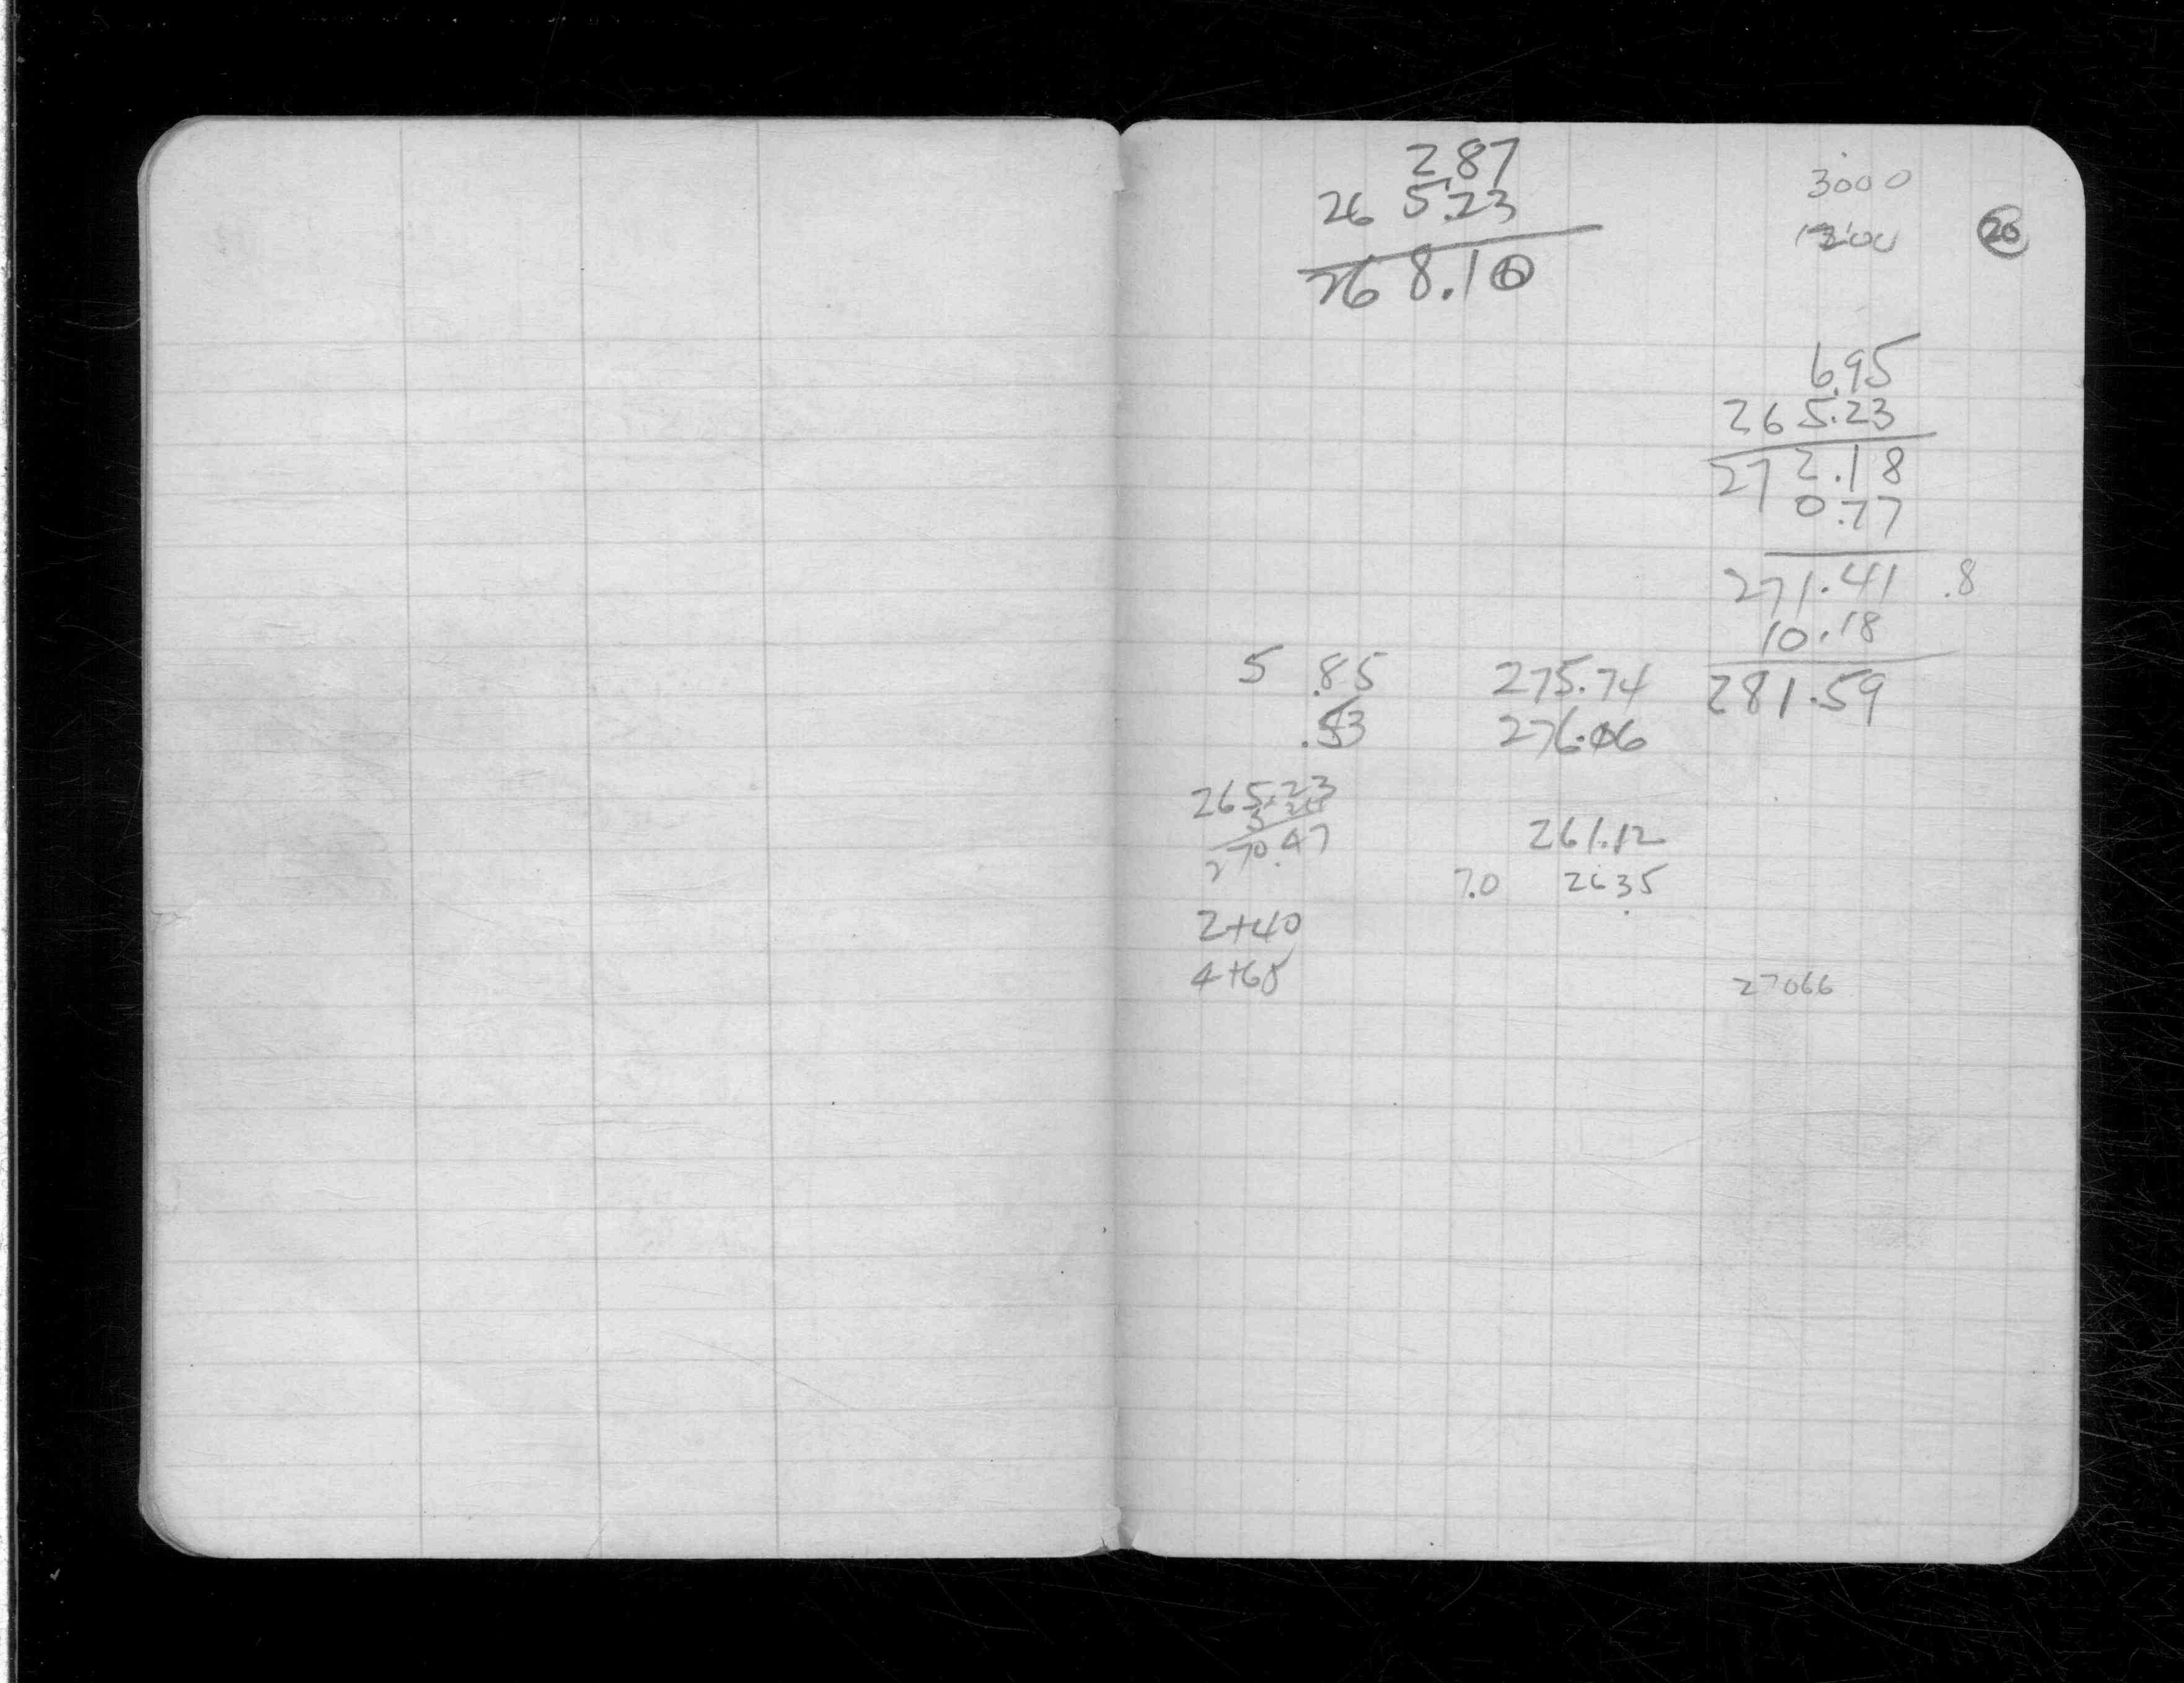 2.87
265.23
268.10
3000
20
6.95
265.23
272.18
0.77
271.41 .8
10.18
281.59
5 .85 275.74
.53 276.06
265.23
270.47
261.12
7.0 2635
2+40
4+65
27066